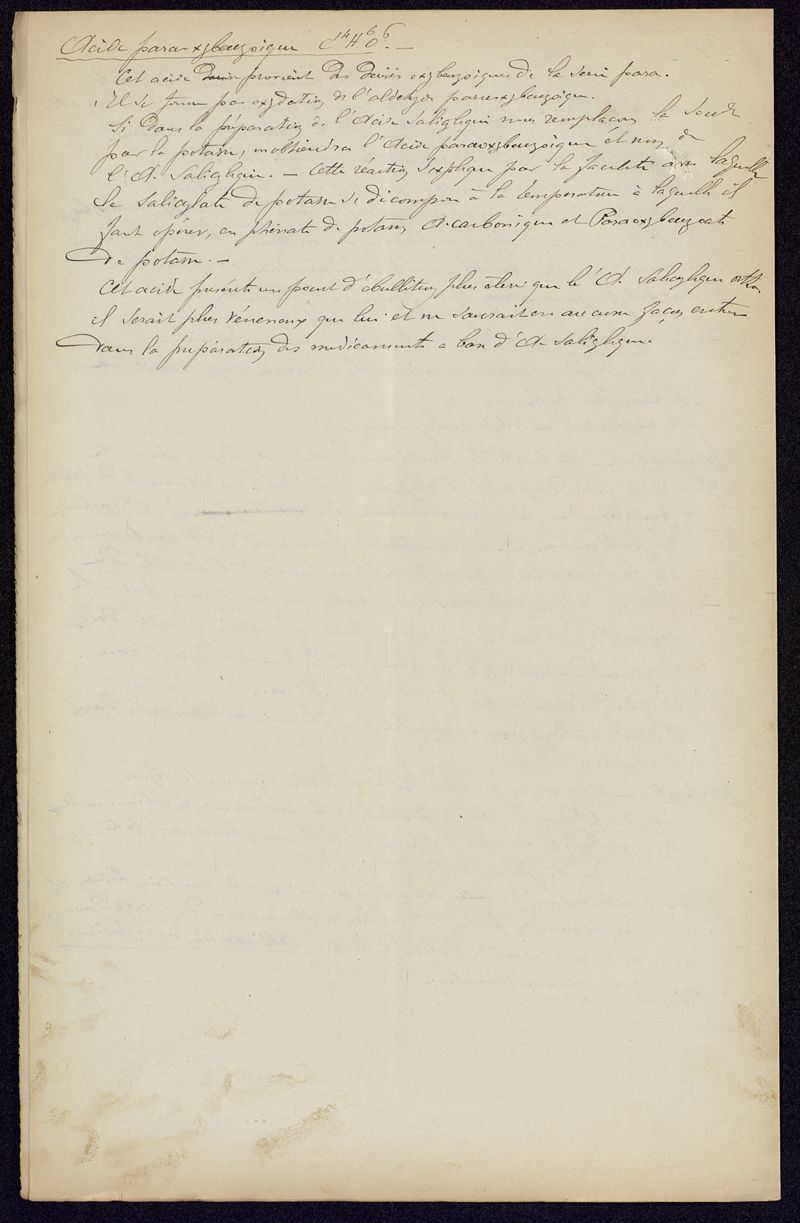 Acide paraoxybenzoique C14H6O6. —
Cet acide provient des dérivés oxybenzoiques de la serie para.
Il se forme par oxydation de l'aldehyde paraoxybenzoique.
Si dans la préparation de l'Acide Saliglique nous remplaçons la Soude
par la potasse, on obtiendra l'Acide paraoxybenzoique et non de
l'A. Saliglique. — Cette réaction s'explique par la facilité avec laquelle
le Salicylate de potasse se décompose à la temperature à laquelle il
faut opérer, en phénate de potasse A. carbonique et Paraoxybenzoate
de potasse. —
Cet acide présente un point d'ebullition plus élevé que le l'A. Salicylique ortho
il serait plus veneneux que lui et ne saurait en aucune façon entrer
dans la préparation des medicaments a base d'A. Saliglique.